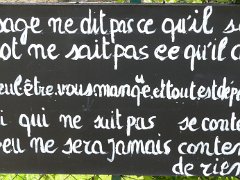 sage ne dit pas ce qu'il s
ot ne sait pas ce qu'il d
eul être, vous mangé, et tout est dép
i qui ne suit pas se conte
eu ne sera jamais conten
de rien